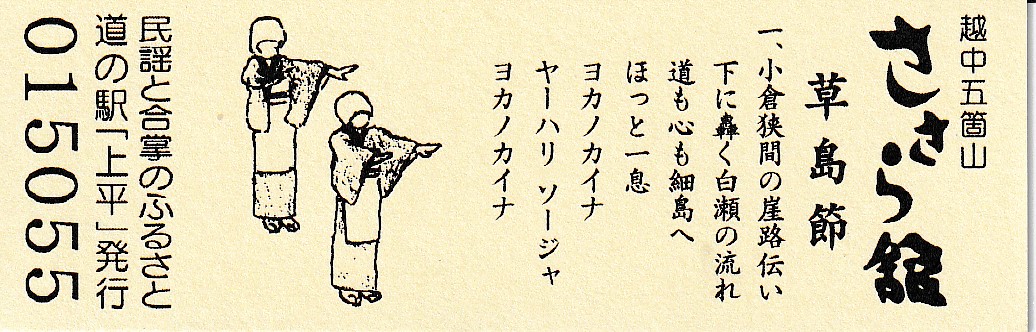 越中五箇山
ささら館
草島節
一、小倉狭間の崖路伝い
下に轟く白瀬の流れ
道も心も細島へ
ほっと一息
ヨカノカイナ
ヤーハリ ソージャ
ヨカノカイナ
民謡と合掌のふるさと
道の駅「上平」発行
015055